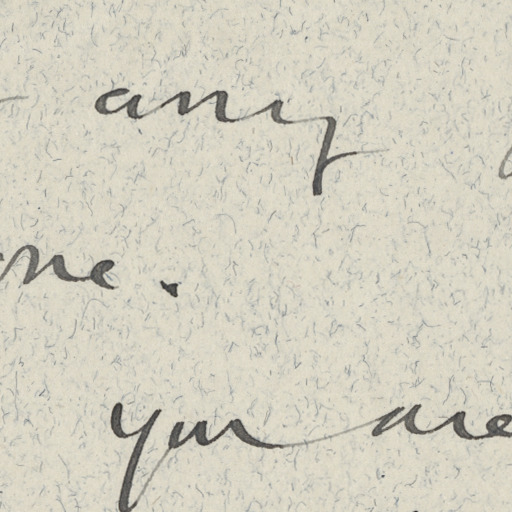 any
me.
you are